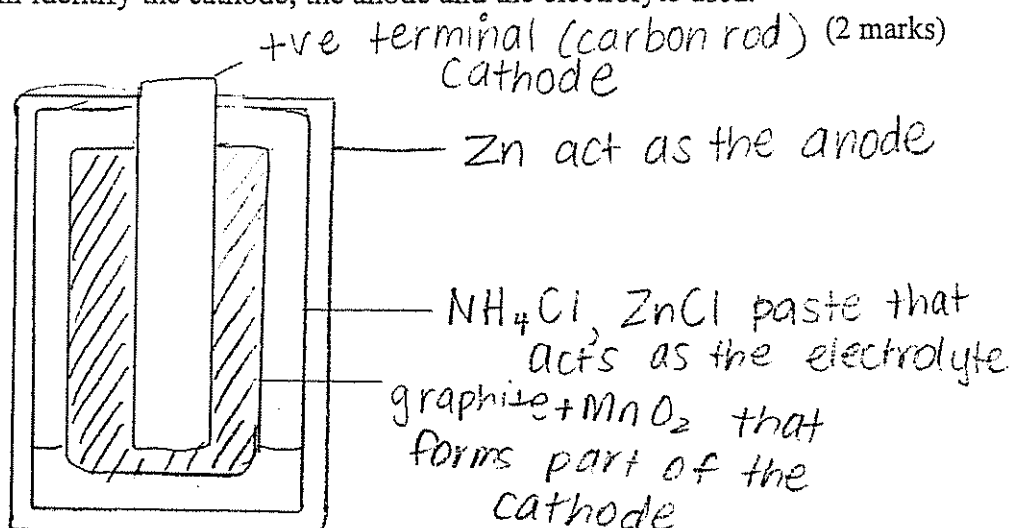 identify the cathode, the anode and the electrolyte used.
+ve terminal (carbon rod) (2 marks)
Cathode
Zn act as the anode
NH₄Cl, ZnCl paste that
acts as the electrolyte
graphite+MnO₂ that
forms part of the
cathode